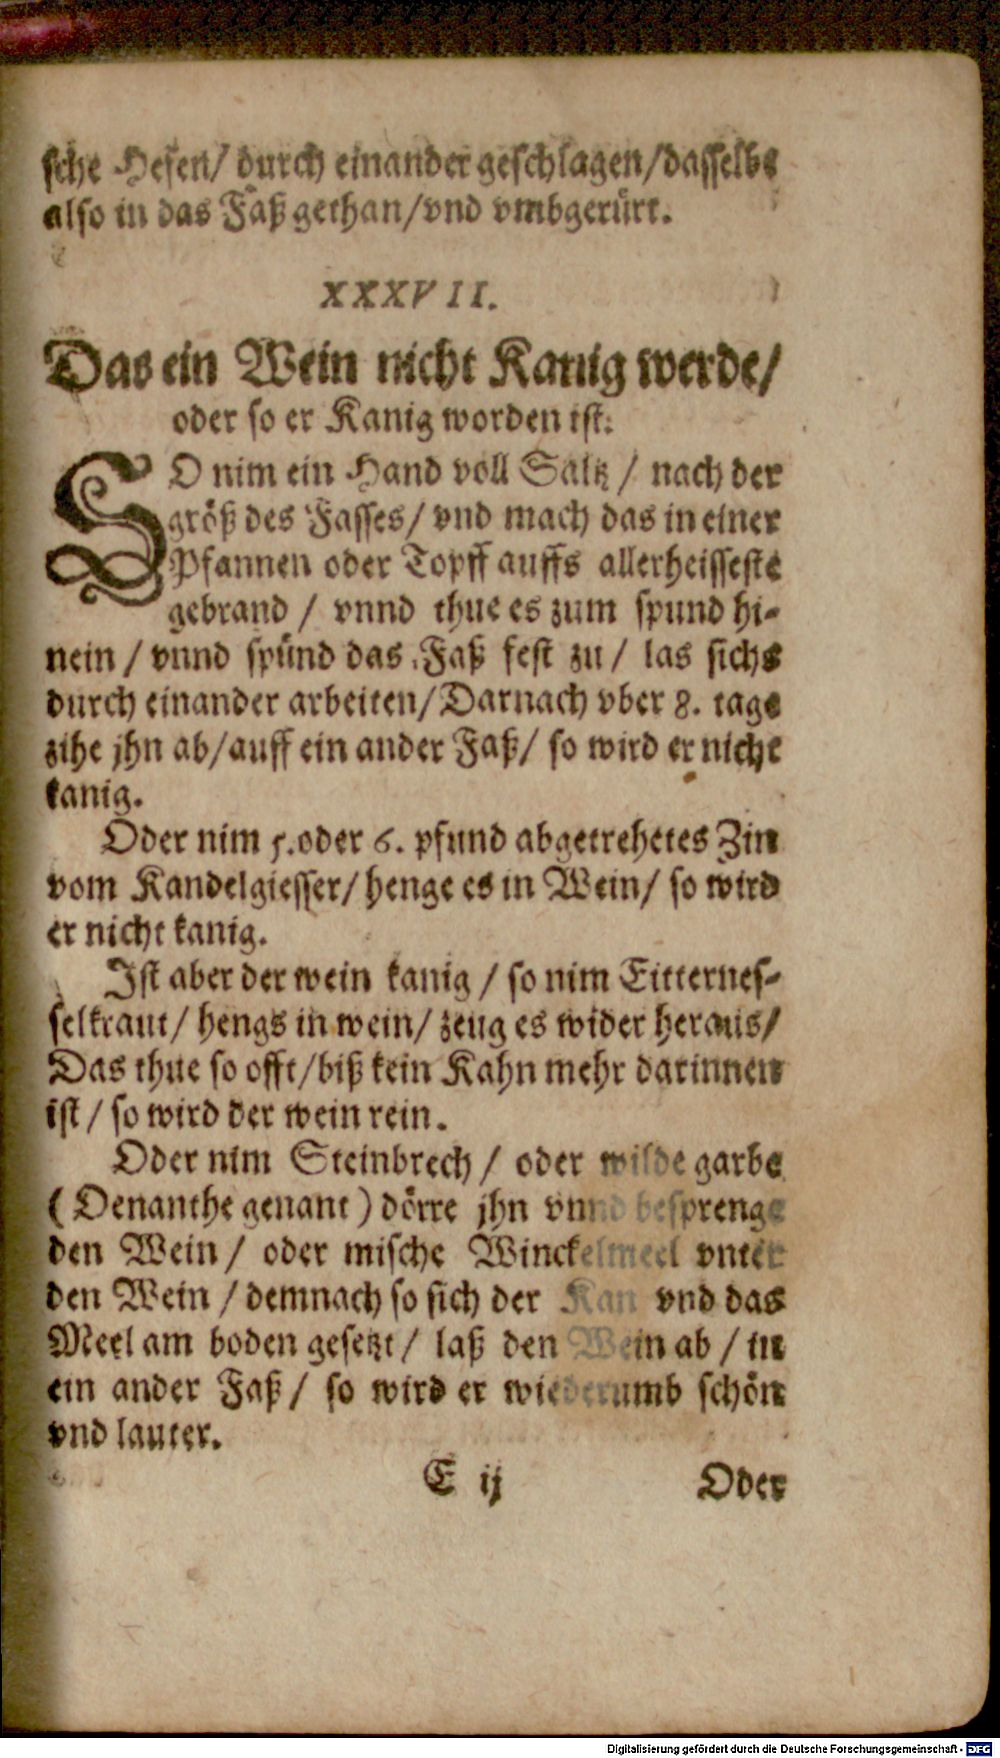 sche Hefen/ durch einander geschlagen/ dasselbe
also in das Faß gethan/ vnd vmbgerürt.
XXXVII.
Das ein Wein nicht Kanig werde/
oder so er Kanig worden ist.
SO nim ein Hand voll Saltz / nach der
größ des Fasses/ vnd mach das in einer
Pfannen oder Topff auffs allerheisseste
gebrand / vnnd thue es zum spund hi-
nein / vnnd spünd das Faß fest zu / las sichs
durch einander arbeiten/ Darnach vber 8. tage
zihe jhn ab/ auff ein ander Faß/ so wird er nicht
kanig.
Oder nim 5. oder 6. pfund abgetrehetes Zin
vom Kandelgiesser/ henge es in Wein/ so wird
er nicht kanig.
Ist aber der wein kanig / so nim Eitternes-
selkraut/ hengs in wein/ zeug es wider heraus/
Das thue so offt/ biß kein Kahn mehr darinnen
ist / so wird der wein rein.
Oder nim Steinbrech / oder wilde garbe
(Oenanthe genant) dörre jhn vnnd besprenge
den Wein / oder mische Winckelmeel vnter
den Wein / demnach so sich der Kan vnd das
Meel am boden gesetzt / laß den Wein ab / in
ein ander Faß / so wird er wiederumb schön
vnd lauter.
E ij Oder
Digitalisierung gefördert durch die Deutsche Forschungsgemeinschaft - DFG